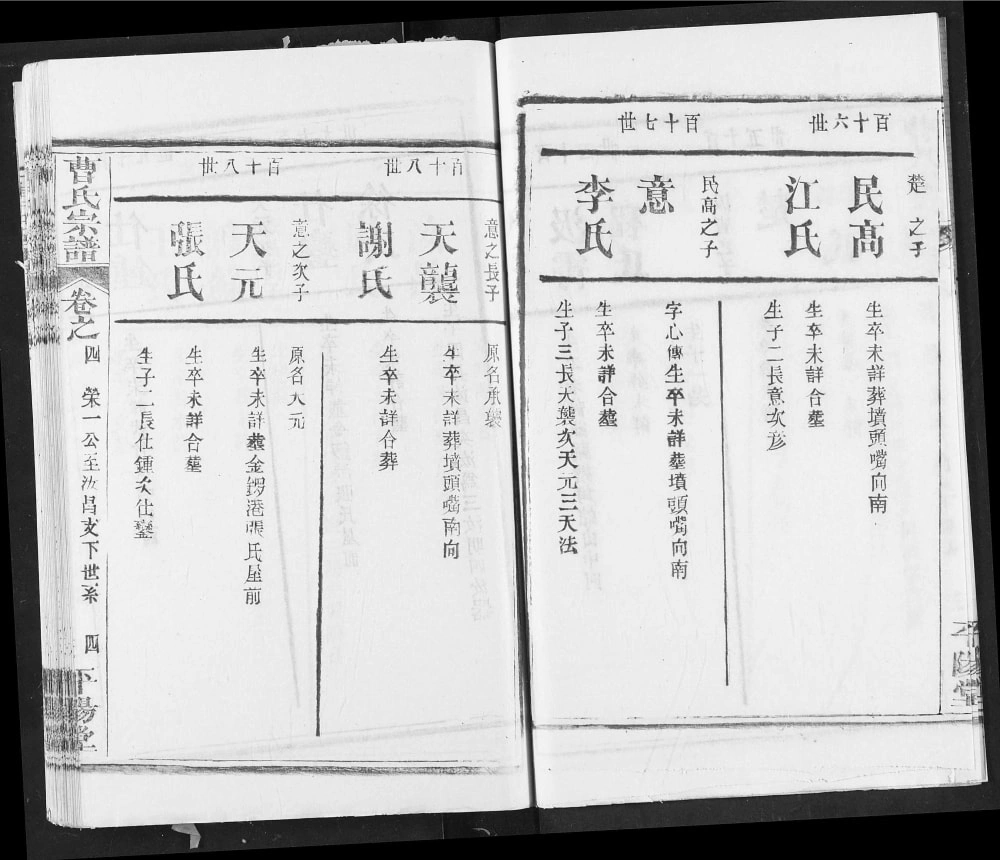 百十六世
楚 之子
民高
江氏
生卒未詳葬墳頭嘴向南
生卒未詳合墓
生子二長意次彦
百十七世
民高之子
意
李氏
字心傳生卒未詳墓墳頭嘴向南
生卒未詳合墓
生子三長天襲次天元三天法
平陽堂
百十八世
意之長子
天襲
謝氏
原名承襲
生卒未詳葬墳頭嘴南向
生卒未詳合葬
百十八世
意之次子
天元
張氏
原名大元
生卒未詳墓金鍔港張氏屋前
生卒未詳合墓
生子二長仕鍾次仕鑾
曹氏宗譜
卷之四 榮一公至汝昌支下世系 四
平陽堂